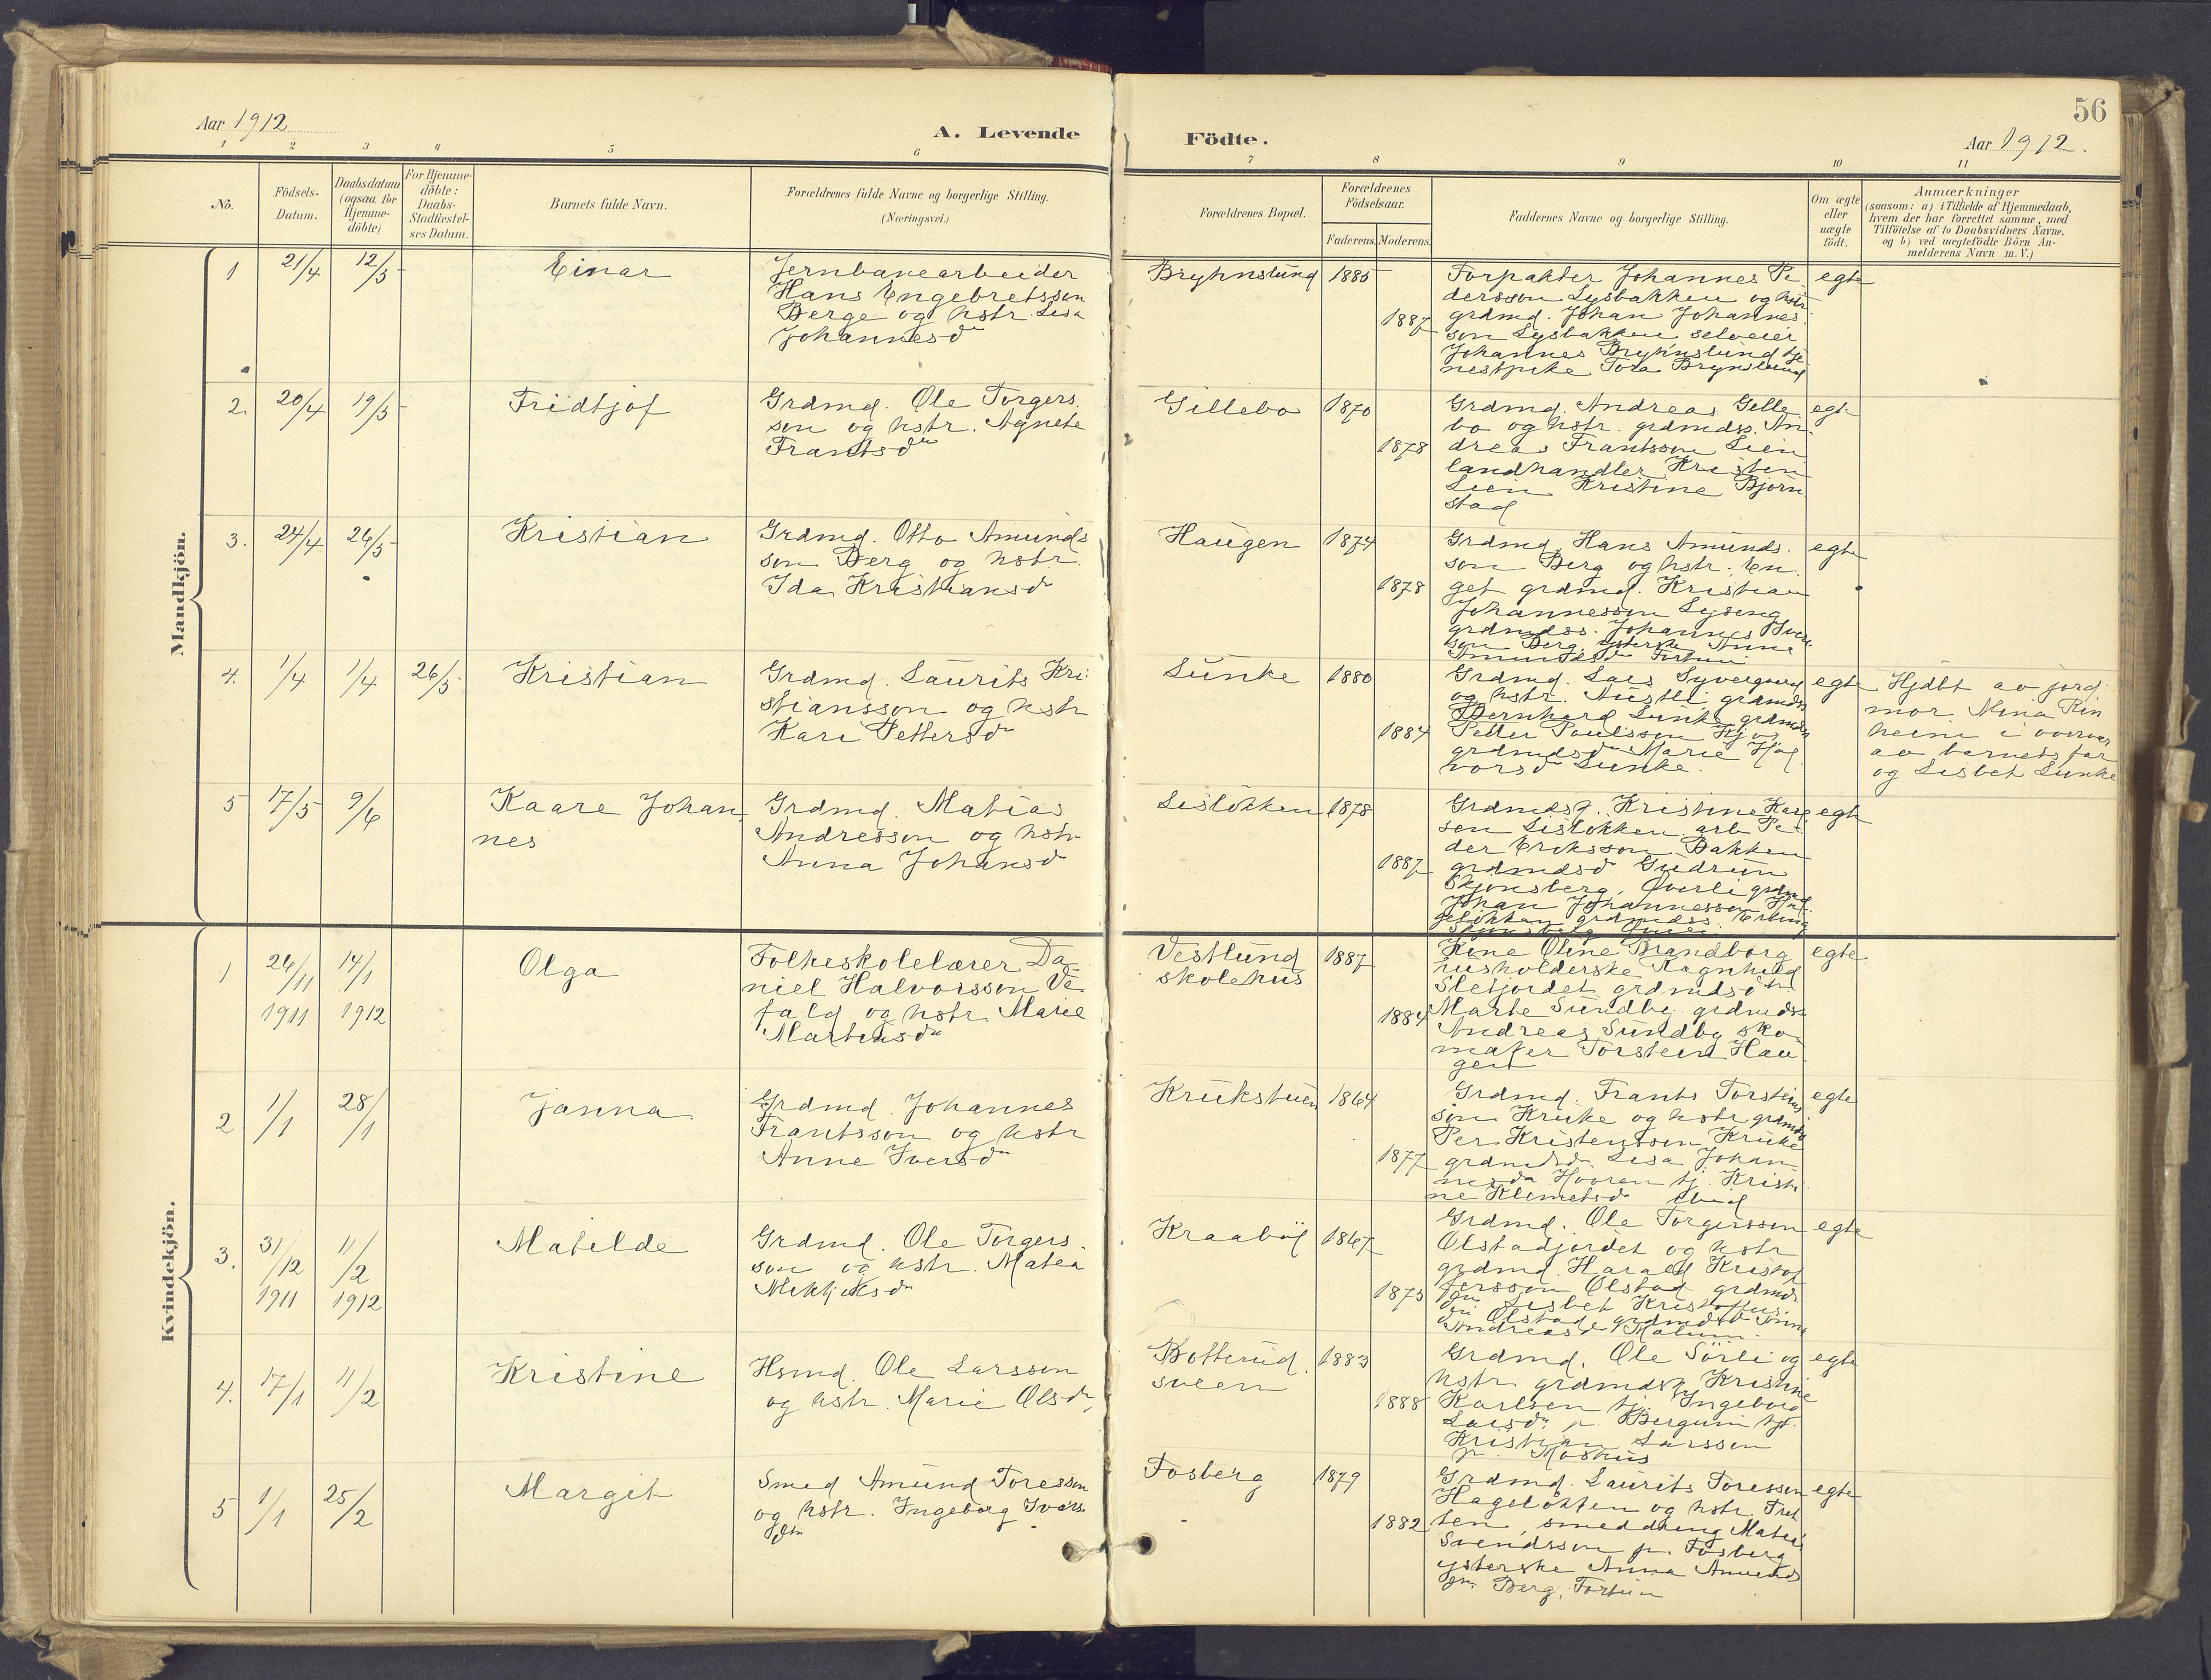 56
Aar 1912
A. Levende
Födte.
Aar 1912.
1 2 3 4 5 6 7 8 9 10 11
No.
Födsels-
Datum.
Daabsdatum
(ogsaa for
Hjemme-
döbte)
For Hjemme-
döbte:
Daabs-
Stadfæstel-
ses Datum.
Barnets fulde Navn.
Forældrenes fulde Navne og borgerlige Stilling.
(Næringsvei.)
Forældrenes Bopæl.
Forældrenes
Födselsaar.
Faderens. Moderens.
Faddernes Navne og borgerlige Stilling.
Om ægte
eller
uægte
födt.
Anmærkninger
(saasom: a) i Tilfælde af Hjemmedaab,
hvem der har forrettet samme, med
Tilföielse af to Daabsvidners Navne.
og b) ved uægtefödte Börn An-
melderens Navn m. V.)
Mandkjön.
1 21/4 12/5 Einar
Jernbanearbeider
Hans Engebretssen
Berge og hstr. Lisa
Johannesd
Bryhnslund 1885
1887
Forpakter Johannes Pe
dersson Lysbakken og hstr
grdmd. Johan Johannes
son Lysbakken selveier
Johannes Bryhnslund tje
nestpike Tora Brynslund
egte
2. 20/4 19/5 Fridtjof
Grdmd. Ole Torgers
son og hstr. Agnete
Frantsdtr
Gillebo 1870
1878
Grdmd. Andreas Gille
bo og hstr. grdmdss. An
dreas Frantsson Lien
landhandler Kristen
Lien Kristine Bjørn
stad
egte
3. 24/4 26/5 Kristian
Grdmd. Otto Amunds
son Berg og hstr.
Ida Kristiansd
Haugen 1874
1878
Grdmd. Hans Amunds.
son Berg og hstr. En
get grdmd. Kristian
Johannesson Lyseng
grdmdss. Johannes Iver
son Berg, ysterske Anna
Amundsdtr Fortun
egte
4. 1/4 1/4 26/5 Kristian
Grdmd. Laurits Kri
stiansson og hstr
Kari Pettersd
Lunke 1880
1884
Grdmd. Lars
og hstr. grdmdss
Bernhard Lunke grdmdss
Petter Poulsson Kjos
grdmdsdtr Marie Hal
vorsd Lunke.
egte
Hjdbt av jord
mor Mina Rin
heim i overvær
av barnets far
og Lisbet Lunke
5 17/5 9/6 Kaare Johan
nes
Grdmd. Matias
Andresson og hstr
Anna Johansd
Lisløkken 1878
1887
Kristine Karl
sen Lisløkken arb Pe
der Eriksson Bakken
grdmdsd Gudrun
Skjønsberg, Øverli grdmd
Johan Johannesson Ha
geløkken grdmdss. Erling
Skjønsberg
egte
Kvindekjön.
1 26/11 1911 14/1 1912 Olga
Folkeskolelærer Da
niel Halvorsson Ve
fald og hstr. Marie
Martinsdtr
Vestlund
skolehus
1887
1884
Kone Oline Brandborg
husholderske Ragnhild
Sletjordet grdmdsdtr
Marte Sundby grdmdss.
Andreas Sundby sko
maker Torstein Hau
gen
egte
2 1/1 28/1 Janna
Grdmd. Johannes
Frantsson og hstr
Anne Iversdtr
Krukstuen 1864
1877
Grdmd. Frants Torsteins
son Kruke og hstr grdmdss
Per Kristensson Kruke
grdmdsd. Lisa Johan
nesdtr Hovren tj. Kristi
ne Klemetsd ibid
egte
3. 31/12 1911 11/2 1912 Matilde
Grdmd. Ole Torgers
son og hstr. Matea
Mikkjelsdtr
Kraabøl 1867
1875
Grdmd. Ole Torgersson
Olstadjordet og hstr
grdmd. Harald Kristof
fersson Olstad grdmds
dtr Lisbet Kristoffers
dtr Olstad grdmdsdtr Anna
Andreasd
egte
4. 17/1 11/2 Kristine
Hsmd. Ole Larsson
og hstr. Marie Olsdtr,
Botterud
sveen
1883
1888
Grdmd. Ole Sørli og
hstr Kristine
Karlsen tj. Ingeborg
Larsdtr p. Bergum tjt.
Kristian Larsson
p. Moshus
egte
5 1/1 25/2 Margit
Smed Amund Toresson
og hstr. Ingeborg Ivars
dtr
Fosberg 1879
1882
Grdmd. Laurits Toresson
Hageløkken og hstr. Tret
ten, smeddreng Matis
Svendsson p. Fosberg
ysterske Anna Amunds
dtr Berg, Fortun
egte